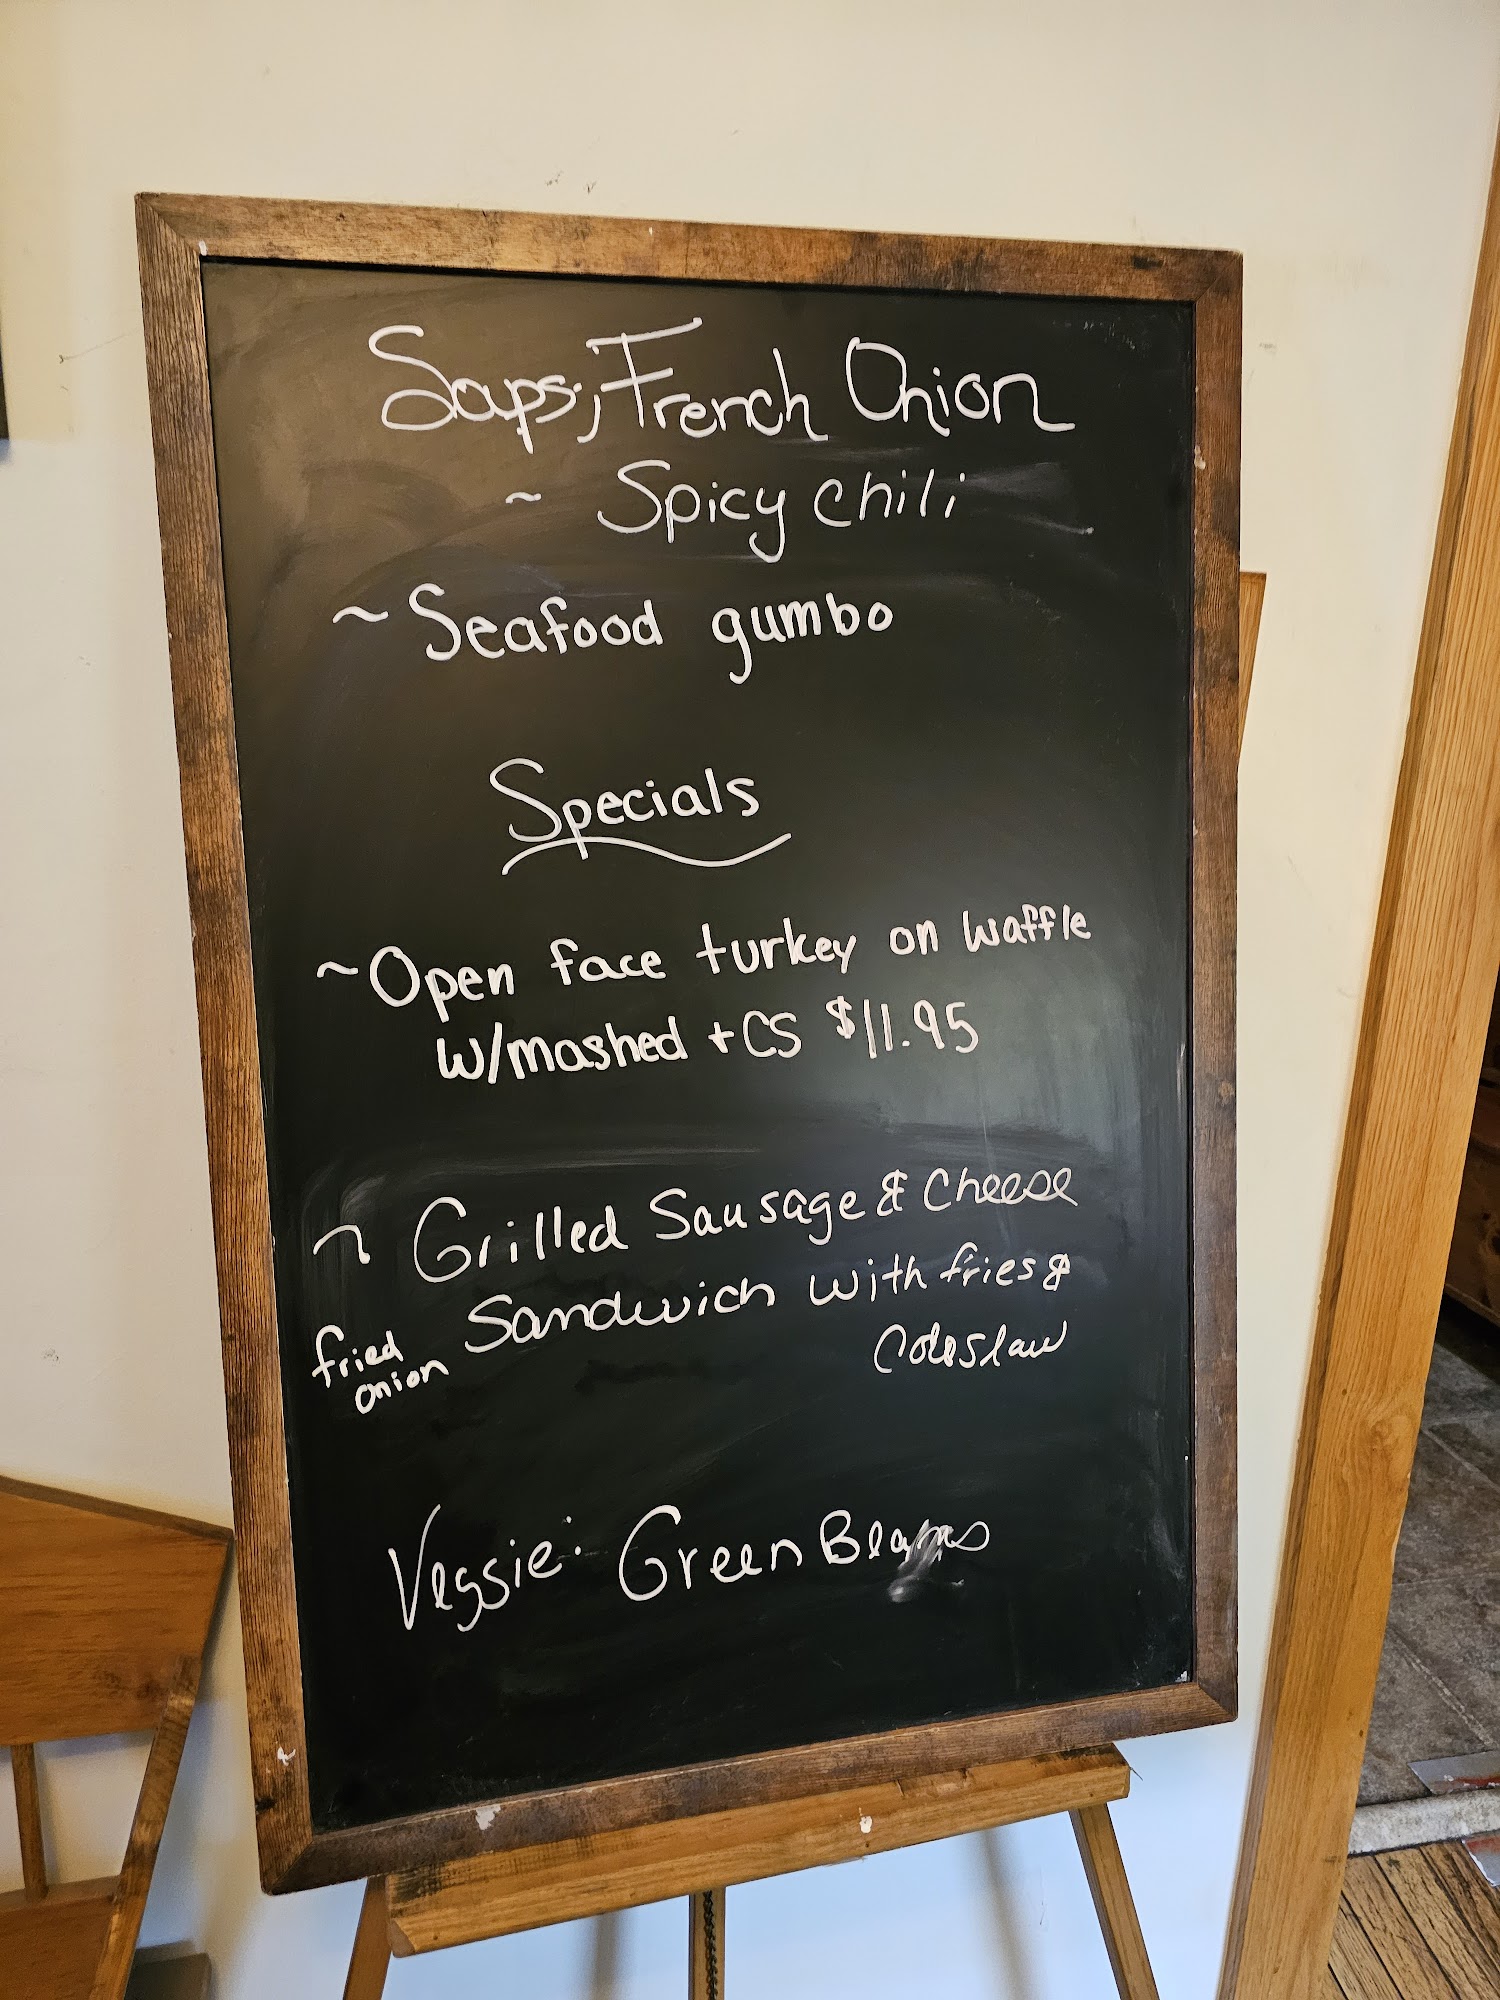 Soups; French Onion
~ Spicy chili
~ Seafood gumbo
Specials
~ Open face turkey on waffle
w/mashed + CS $11.95
~ Grilled Sausage & Cheese
Sandwich with fries &
fried
onion
Coleslaw
Veggie: Green Beans